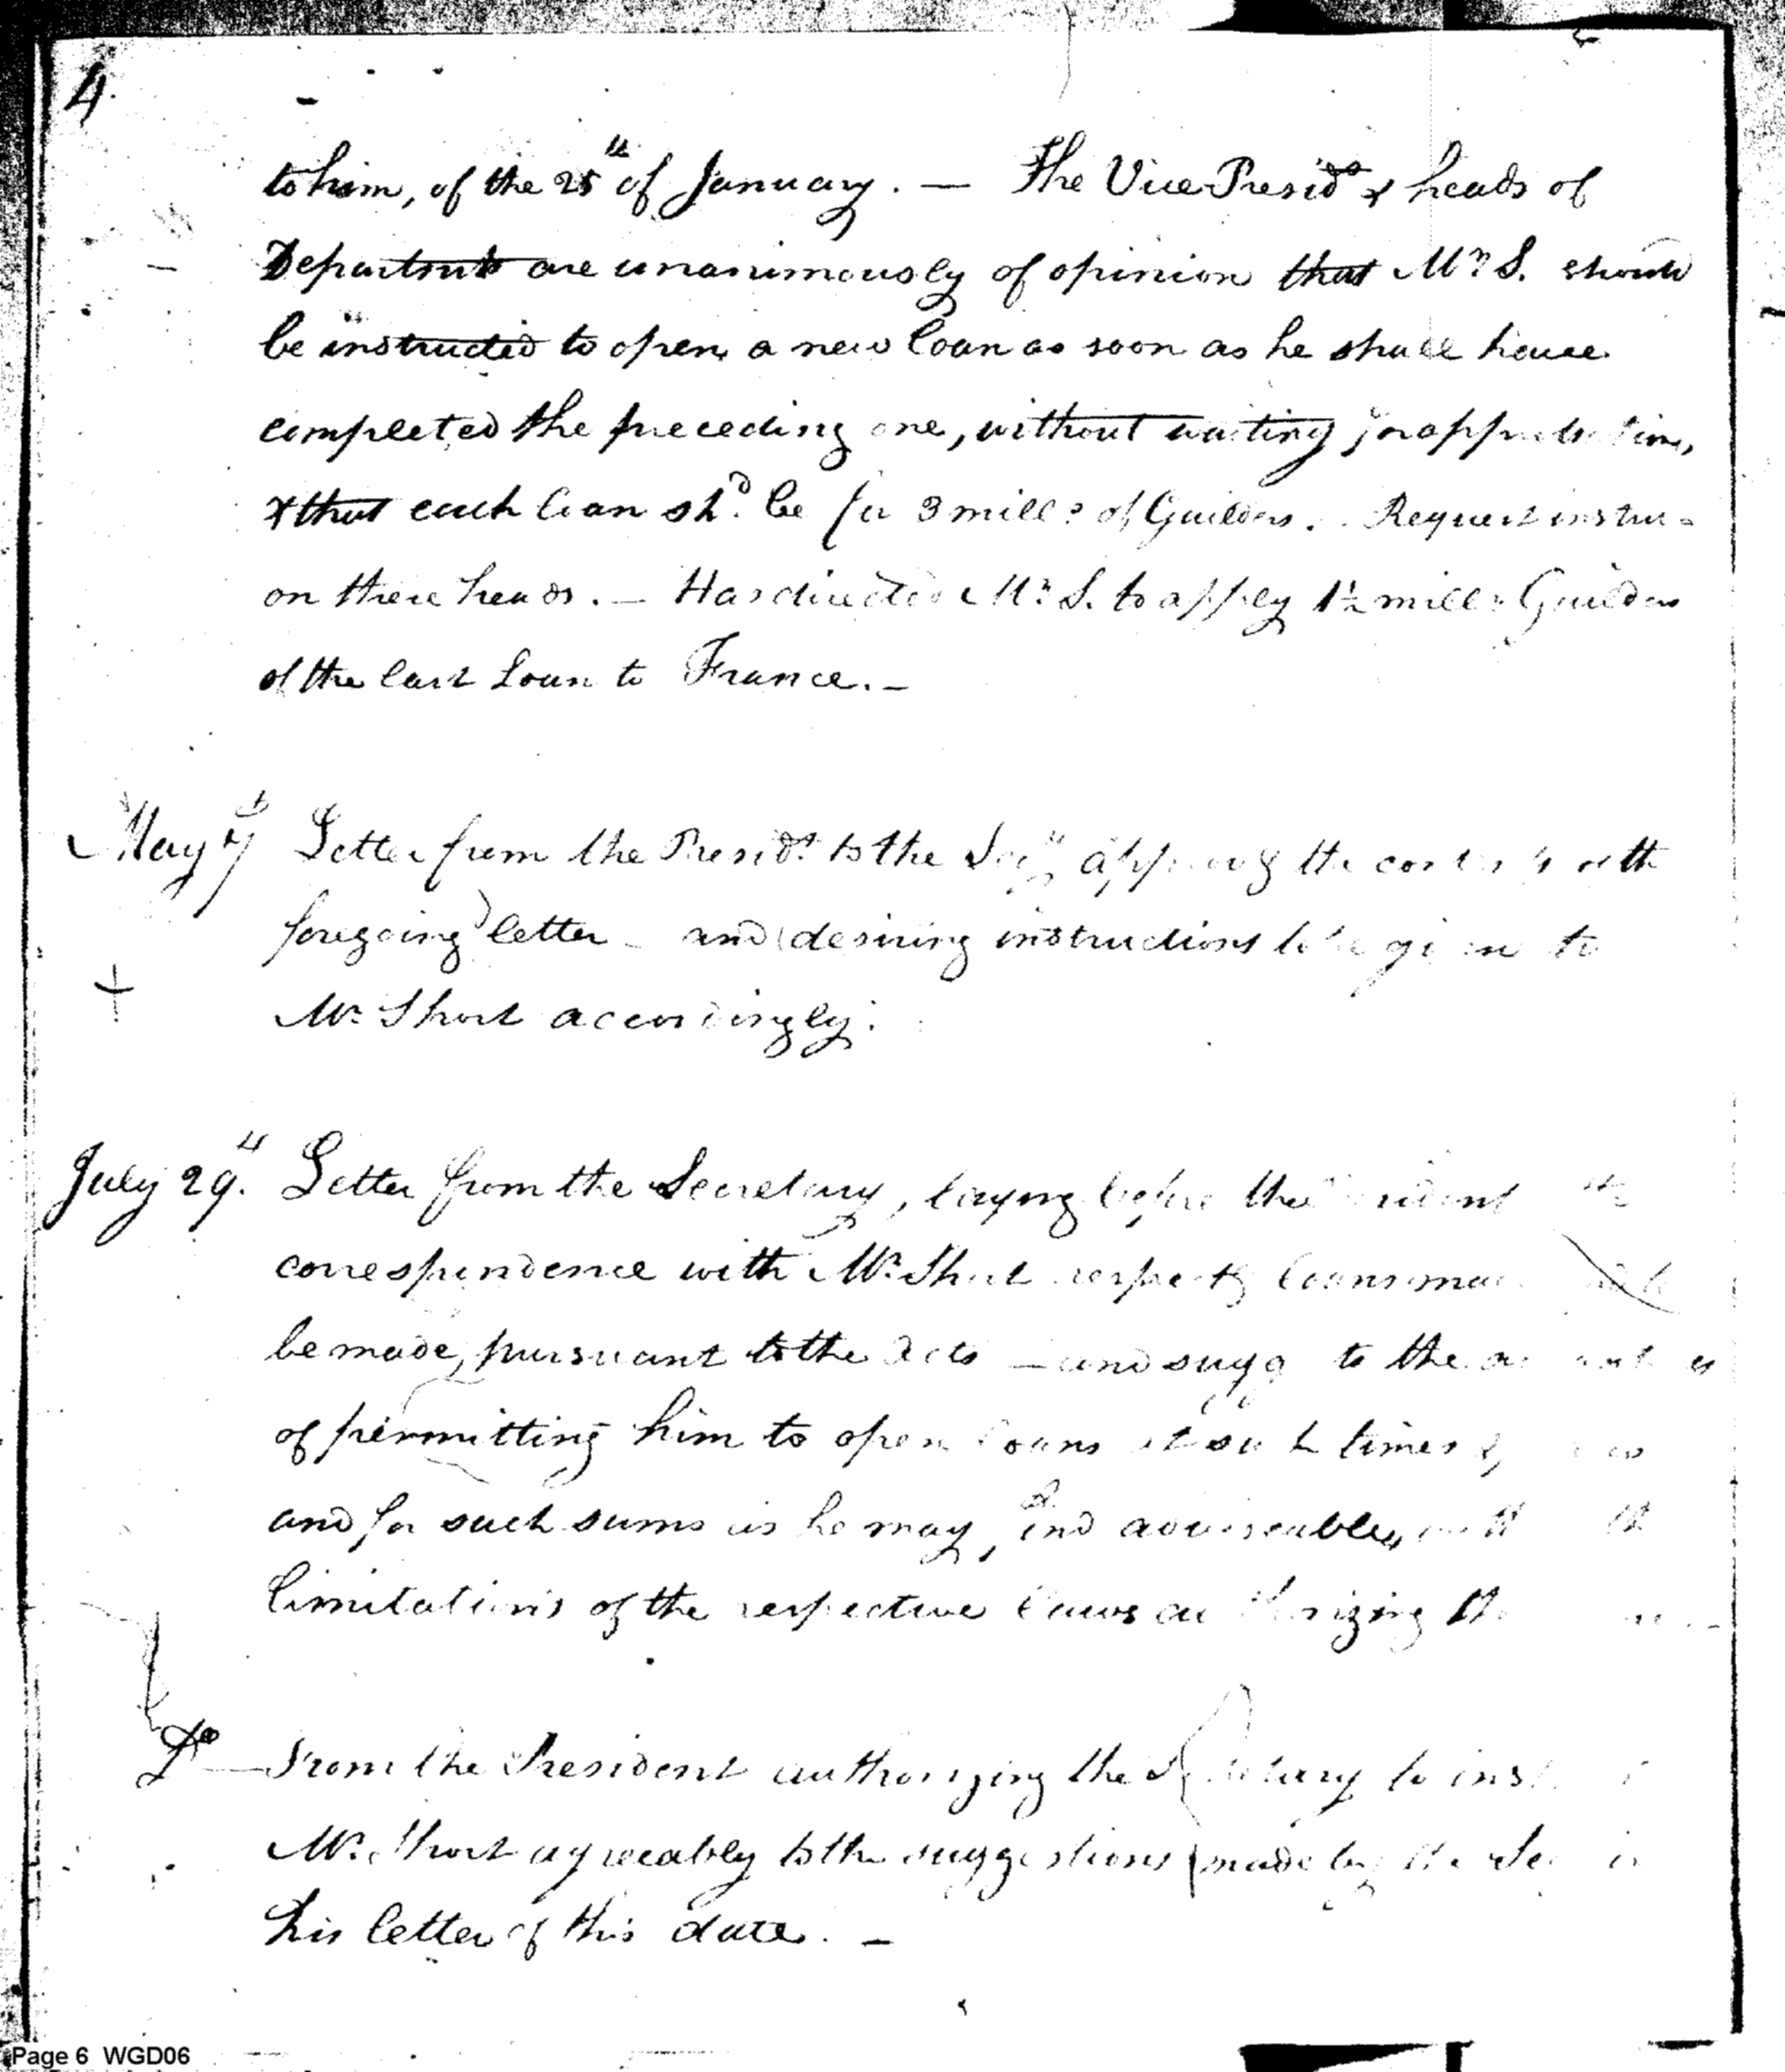 4.
to him, of the 25th of January. — The Vice Presidt & heads of
Departmts are unanimously of opinion that Mr S. should
be instructed to open a new loan as soon as he shall have
completed the preceding one, without waiting for approbation,
& that each loan shd. be for 3 mills of Guilders. Request instru-
on these heads. — Has directed Mr S. to apply 1½ mills Guilders
of the last Loan to France. —
May 7th Letter from the Presidt to the Secy approvg the contents of the
foregoing letter — and desiring instructions to be given to
Mr Short accordingly.
July 29th. Letter from the Secretary, laying before the President the
correspondence with Mr Short respectg loans
be made, pursuant to the acts — and sugg to the
of permitting him to open loans at such times &
and for such sums as he may find adviseable,
limitations of the respective laws authorizing
Do — From the President authorizing the Secretary to
Mr. Short agreeably to the suggestions made by the Sec in
his letter of this date. —
Page 6 WGD06